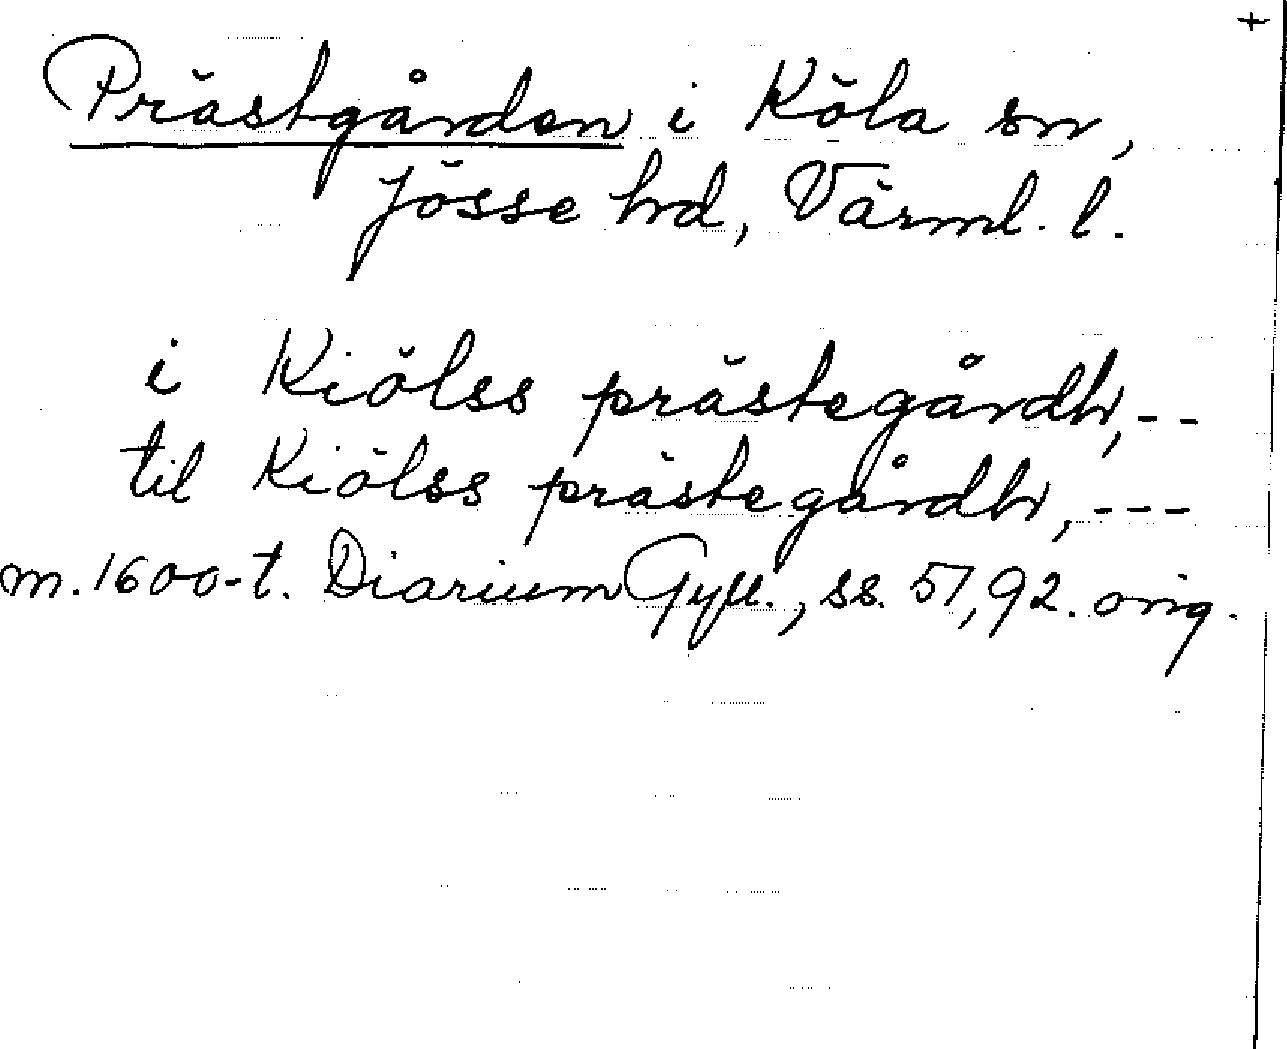 +
Prästgården i Köla sn,
Jösse hd, Värml. l.
i Kiölss prästegårdh, --
til Kiölss prästegårdh, ---
m. 1600-t. Diarium Gyll., ss. 57, 92. orig.